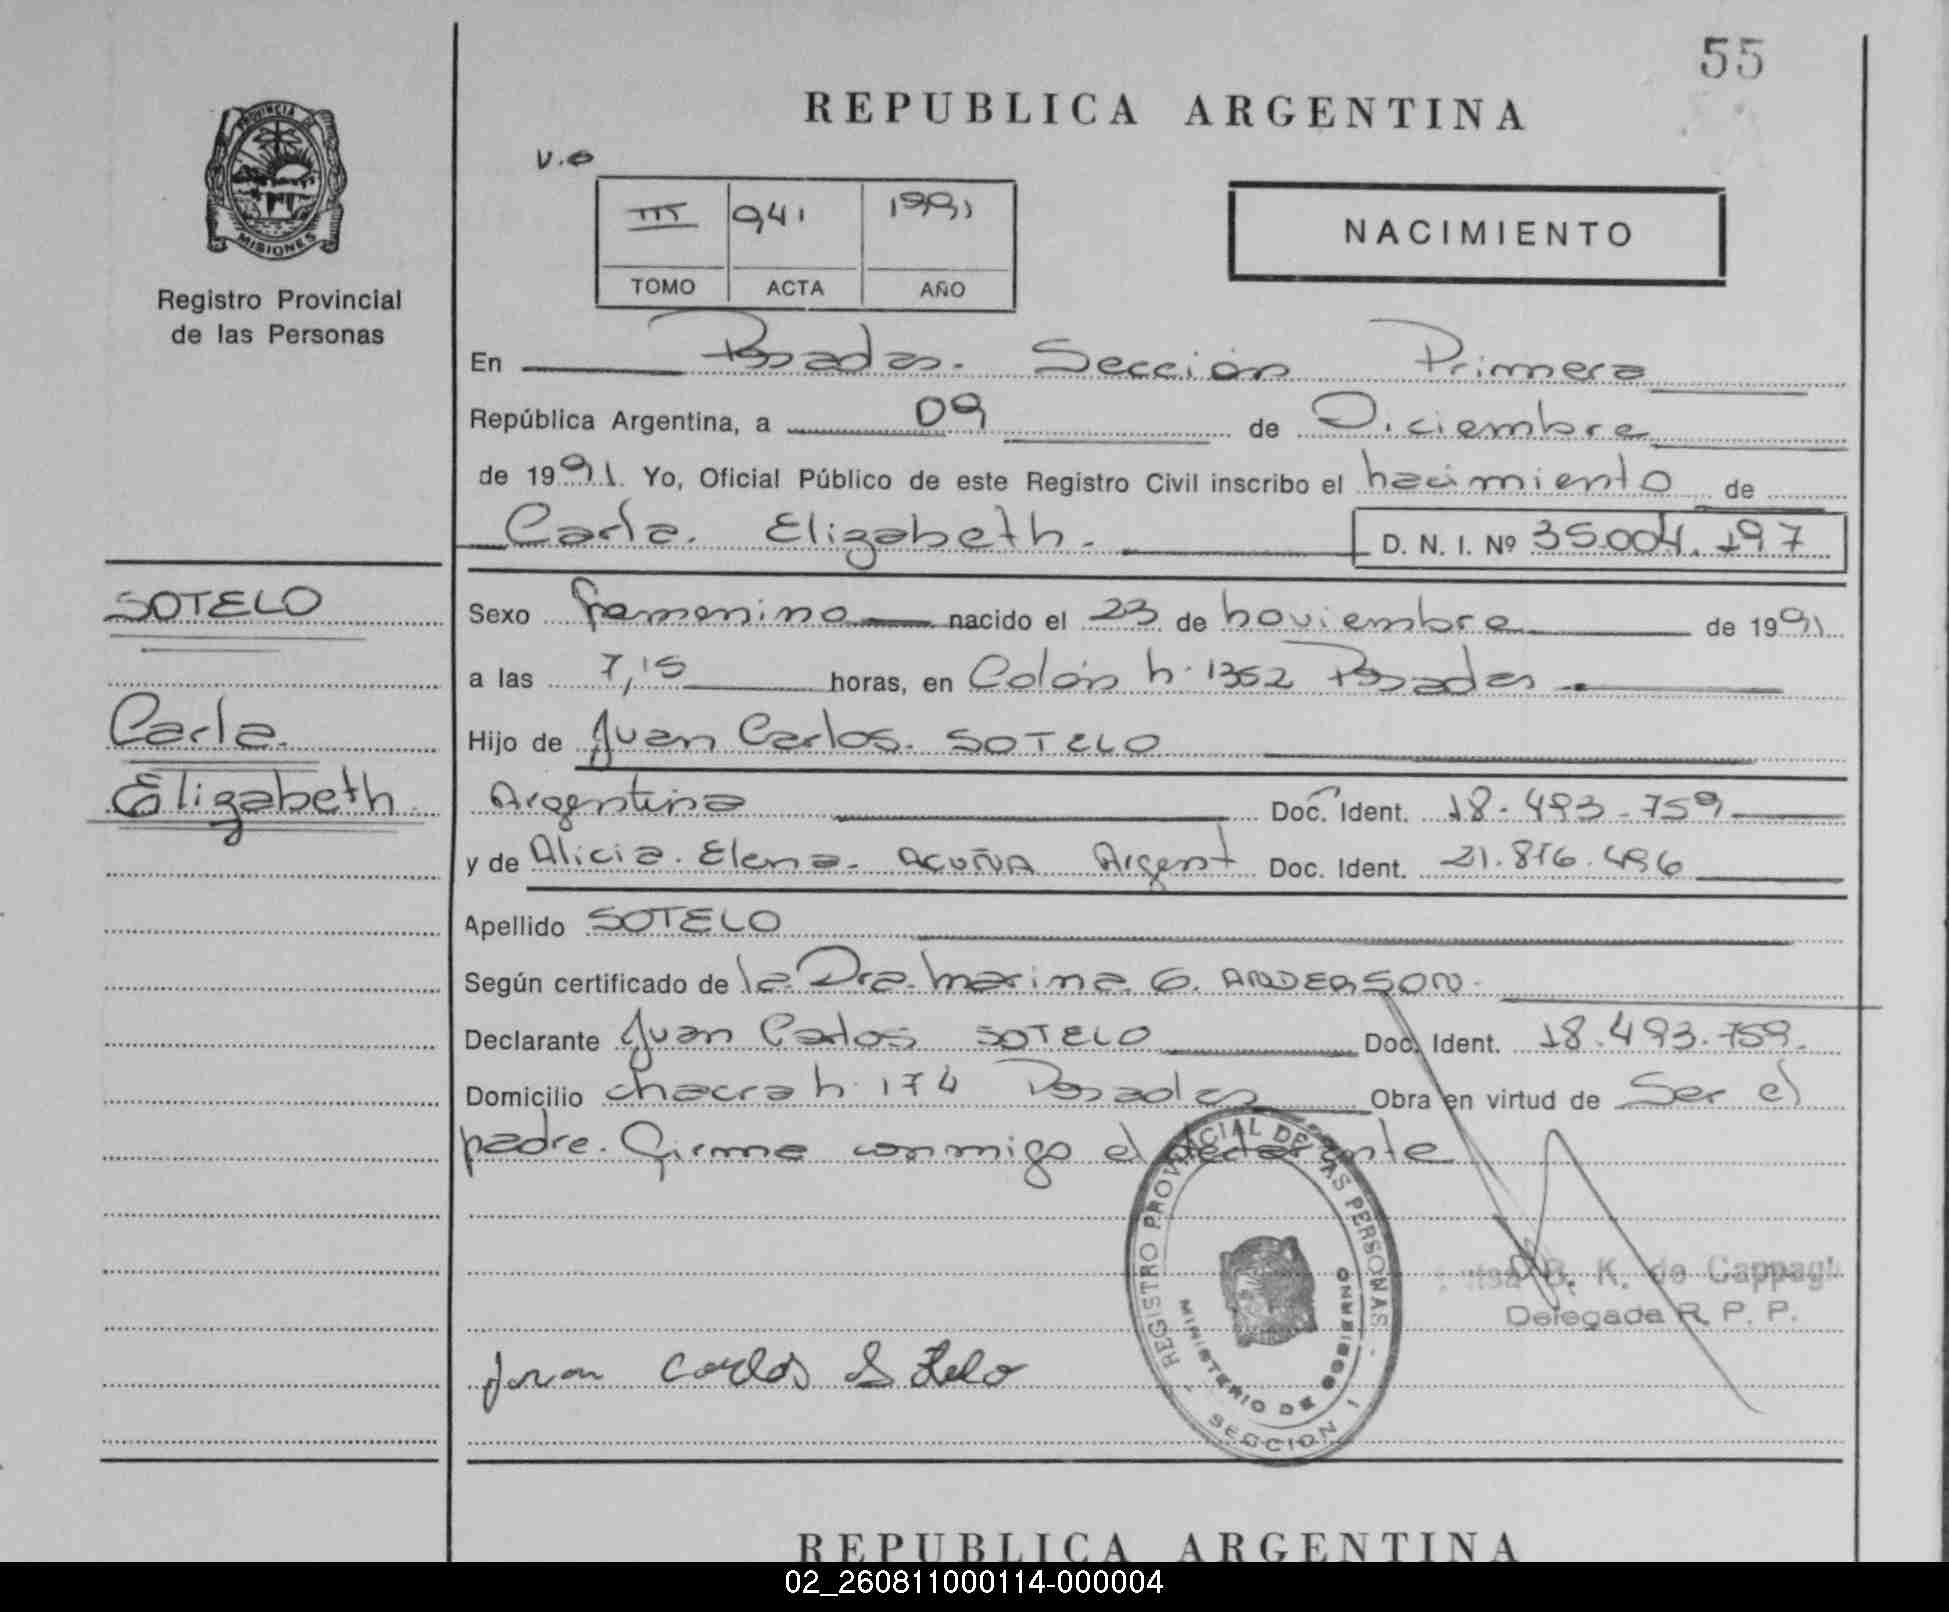 55
REPUBLICA ARGENTINA
PROVINCIA DE
MISIONES
Registro Provincial
de las Personas
III 941 1991
TOMO ACTA AÑO
NACIMIENTO
En Posadas. Sección Primera
República Argentina, a 09 de Diciembre
de 1991. Yo, Oficial Público de este Registro Civil inscribo el nacimiento de
Carla. Elizabeth. D. N. I. Nº 35.004.197
SOTELO
Carla.
Elizabeth
Sexo femenino nacido el 23 de noviembre de 1991
a las 7,15 horas, en Colón n. 1352 Posadas
Hijo de Juan Carlos. SOTELO
Argentina Doc. Ident. 18.493.759
y de Alicia. Elena. ACUÑA Argent Doc. Ident. 21.816.496
Apellido SOTELO
Según certificado de la Dra. Marina G. ANDERSON.
Declarante Juan Carlos SOTELO Doc. Ident. 18.493.759.
Domicilio chacra n. 174 Posadas Obra en virtud de Ser el
padre. Firma conmigo el declarante
REGISTRO PROVINCIAL DE LAS PERSONAS
MINISTERIO DE GOBIERNO
SECCION 1
B. K. de
Delegada R. P. P.
Juan Carlos Sotelo
REPUBLICA ARGENTINA
02_260811000114-000004